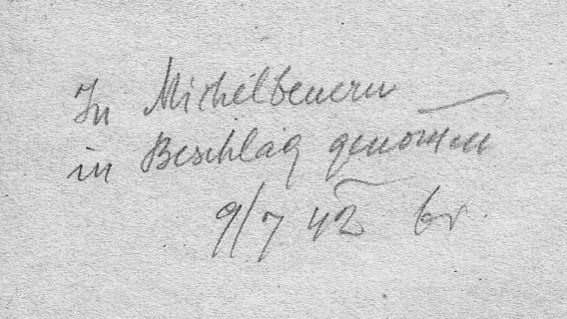 In Michelbeuern
in Beschlag genommen
9/7 42 br.